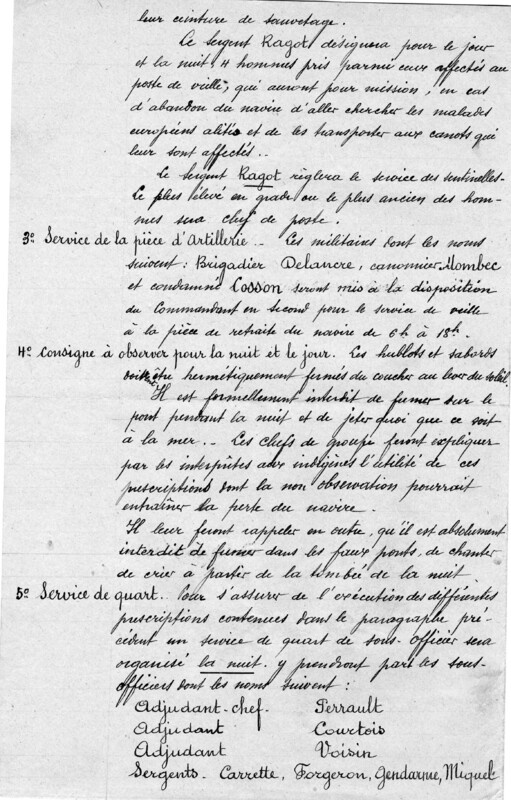 leur ceinture de sauvetage.
Le sergent Ragot désignera pour le jour
et la nuit, 4 hommes pris parmi ceux affectés au
poste de veille, qui auront pour mission, en cas
d'abandon du navire d'aller chercher les malades
européens alités et de les transporter aux canots qui
leur sont affectés..
Le sergent Ragot règlera le service des sentinelles-
Le plus élevé en grade ou le plus ancien des hom-
mes sera chef de poste.
3° Service de la pièce d'Artillerie.- Les militaires dont les noms
suivent: Brigadier Delancre, canonnier Mombec
et condamné Cosson seront mis à la disposition
du Commandant en Second pour le service de veille
à la pièce de retraite du navire de 6h à 18h.
4° Consigne à observer pour la nuit et le jour. Les hublots et sabords
doivent être hermétiquement fermés du coucher au lever du soleil.
Il est formellement interdit de fumer sur le
pont pendant la nuit et de jeter quoi que ce soit
à la mer.- Les chefs de groupe feront expliquer
par les interprètes aux indigènes l'utilité de ces
prescriptions dont la non observation pourrait
entraîner la perte du navire.
Il leur feront rappeler en outre, qu'il est absolument
interdit de fumer dans les faux ponts, de chanter
de crier à partir de la tombée de la nuit
5° Service de quart.. Pour s'assurer de l'exécution des différentes
prescriptions contenues dans le paragraphe pré-
cédent un service de quart de sous-Officier sera
organisé la nuit. y prendront part les sous-
officiers dont les noms suivent:
Adjudant-chef- Perrault
Adjudant Courtois
Adjudant Voisin
Sergents- Carrette, Forgeron, Gendarme, Miquel